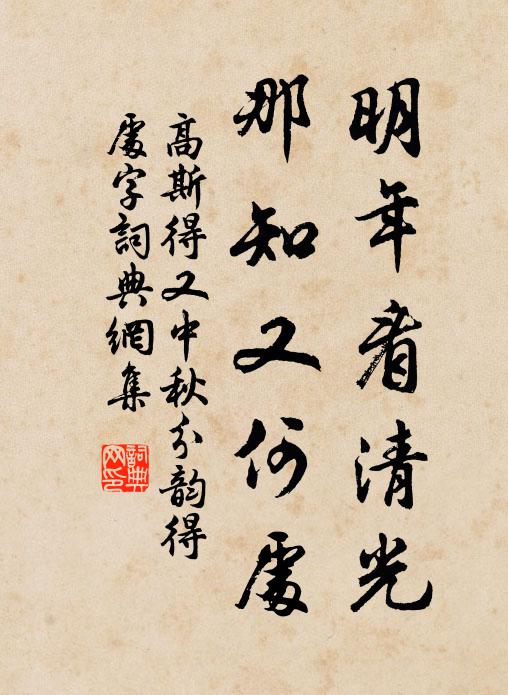 明年看清光
那知又何處
高斯得又中秋分韵得
處字詞典網集
詞典
网印